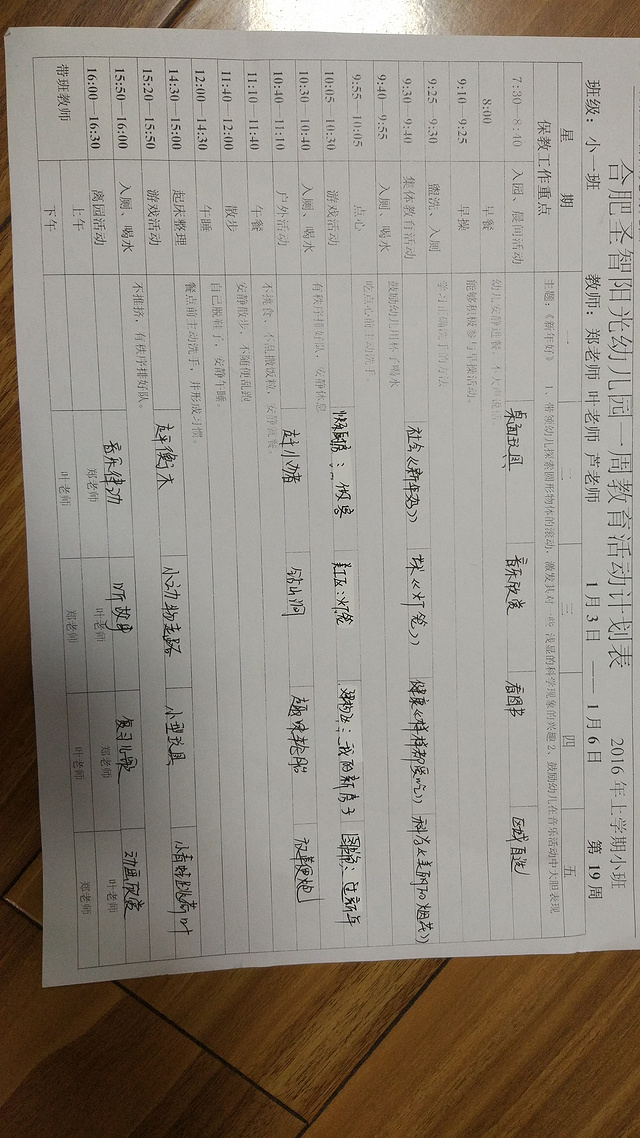 合肥圣智阳光幼儿园一周教育活动计划表 2016年上学期小班
班级: 小一班 教师: 郑老师 叶老师 芦老师 1月3日 —— 1月6日 第19周
星 期 一 二 三 四 五
保教工作重点 主题:《新年好》 1、带领幼儿探索圆形物体的滚动,激发其对一些 浅显的科学现象的兴趣2、鼓励幼儿在音乐活动中大胆表现
7:30—8:40 入园、晨间活动 桌面玩具 音乐欣赏 看图书 区域自选
8:00 早餐 幼儿安静进餐,不大声说话
9:10—9:25 早操 能够积极参与早操活动。
9:25—9:30 盥洗、入厕 学习正确洗手的方法
9:30—9:40 集体教育活动 社会《新年到》 艺术《灯笼》 健康《样样都爱吃》 科学《美丽的烟花》
9:40—9:55 入厕、喝水 鼓励幼儿用杯子喝水
9:55—10:05 点心 吃点心前主动洗手。
10:05—10:30 游戏活动 娃娃家:做客 美工区:灯笼 建构区:我的新房子 图书角:过新年
10:30—10:40 入厕、喝水 有秩序排好队、安静休息
10:40—11:10 户外活动 赶小猪 钻山洞 趣味抢椅
11:10—11:40 午餐 不挑食、不乱撒饭粒,安静就餐。
11:40—12:00 散步 安静散步,不随便乱跑
12:00—14:30 午睡 自己脱鞋子,安静午睡。
14:30—15:00 起床整理 餐点前主动洗手,并形成习惯。
15:20—15:50 游戏活动 走平衡木 小动物走路 小型玩具 小青蛙跳荷叶
15:50—16:00 入厕、喝水 不推挤,有秩序排好队。
16:00—16:30 离园活动 音乐律动 听故事 复习儿歌 动画欣赏
带班教师 上午 郑老师 叶老师 郑老师 叶老师
下午 叶老师 郑老师 叶老师 郑老师